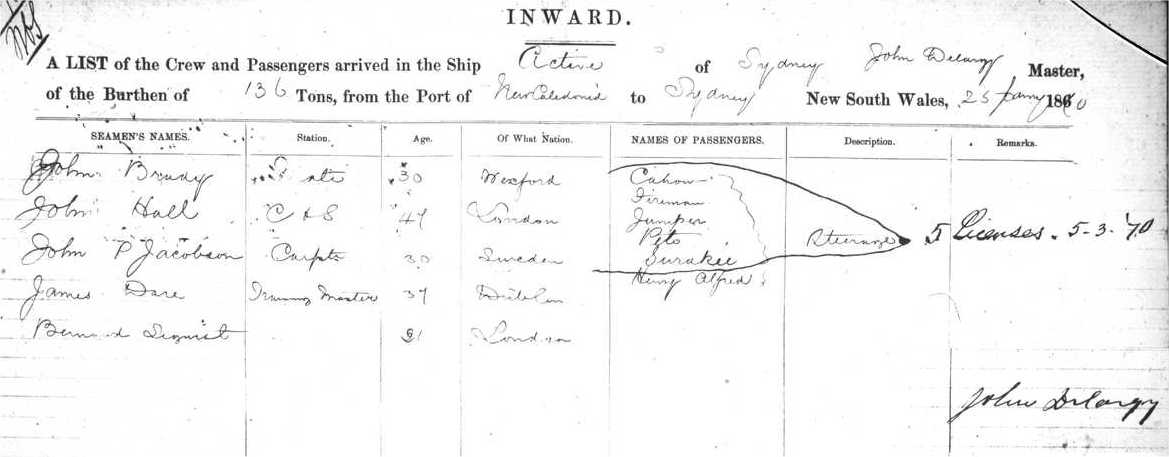 INWARD.
A LIST of the Crew and Passengers arrived in the Ship Active of Sydney John Delargy Master,
of the Burthen of 136 Tons, from the Port of New Caledonia to Sydney New South Wales, 25 1870
SEAMEN'S NAMES. Station. Age. Of What Nation. NAMES OF PASSENGERS. Description. Remarks.
John Brady 30 Wexford Cahow
Fireman
John Hall C & S 47 London Juniper
Peto Steerage 5 Licenses. 5-3.'70
John P Jacobson Carptr 30 Sweden
Henry Alfred
James Dare Master 37 Dublin
Bernard 21 London
John Delargy